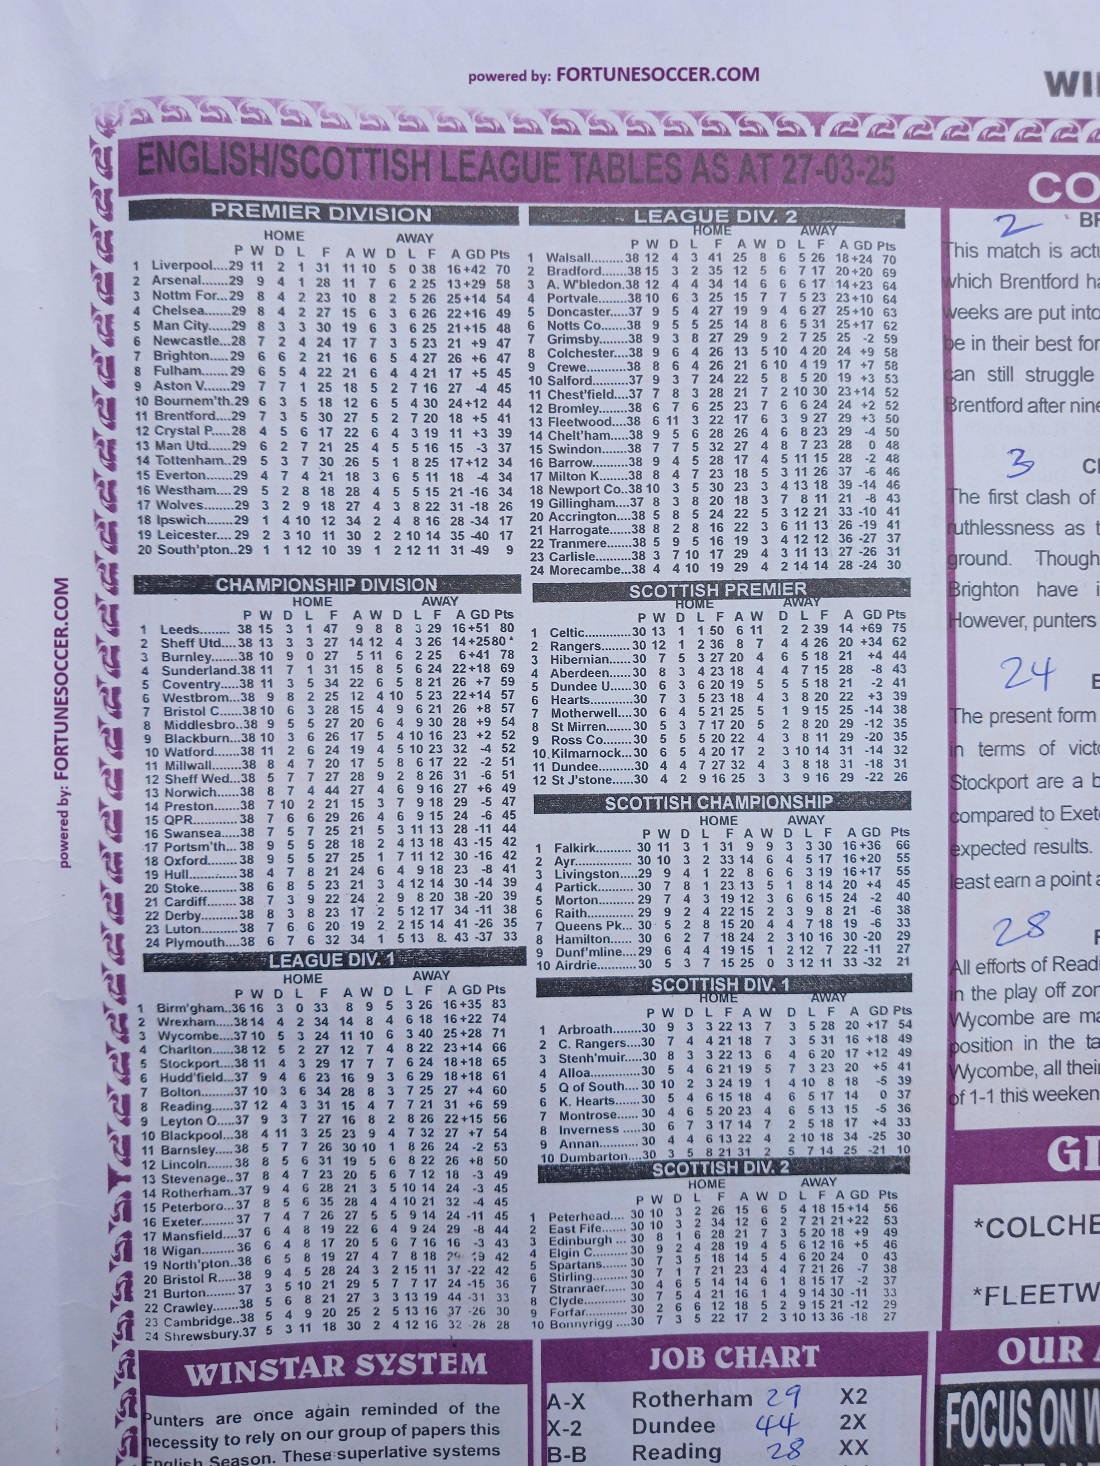 powered by: FORTUNESOCCER.COM
WI
ENGLISH/SCOTTISH LEAGUE TABLES AS AT 27-03-25
PREMIER DIVISION
HOME AWAY
P W D L F A W D L F A GD Pts
1 Liverpool....29 11 2 1 31 11 10 5 0 38 16 +42 70
2 Arsenal.......29 9 4 1 28 11 7 6 2 25 13 +29 58
3 Nottm For...29 8 4 2 23 10 8 2 5 26 25 +14 54
4 Chelsea......29 8 4 2 27 15 6 3 6 26 22 +16 49
5 Man City.....29 8 3 3 30 19 6 3 6 25 21 +15 48
6 Newcastle...28 7 2 4 24 17 7 3 5 23 21 +9 47
7 Brighton.....29 6 6 2 21 16 6 5 4 27 26 +6 47
8 Fulham.......29 6 5 4 22 21 6 4 4 21 17 +5 45
9 Aston V......29 7 7 1 25 18 5 2 7 16 27 -4 45
10 Bournem'th.29 6 3 5 18 12 6 5 4 30 24 +12 44
11 Brentford....29 7 3 5 30 27 5 2 7 20 18 +5 41
12 Crystal P....28 4 5 6 17 22 6 4 3 19 11 +3 39
13 Man Utd.....29 6 2 7 21 25 4 5 5 16 15 -3 37
14 Tottenham..29 5 3 7 30 26 5 1 8 25 17 +12 34
15 Everton......29 4 7 4 21 18 3 6 5 11 18 -4 34
16 Westham....29 5 2 8 18 28 4 5 5 15 21 -16 34
17 Wolves......29 3 2 9 18 27 4 3 8 22 31 -18 26
18 Ipswich......29 1 4 10 12 34 2 4 8 16 28 -34 17
19 Leicester....29 2 3 10 11 30 2 2 10 14 35 -40 17
20 South'pton..29 1 1 12 10 39 1 2 12 11 31 -49 9
CHAMPIONSHIP DIVISION
HOME AWAY
P W D L F A W D L F A GD Pts
1 Leeds........ 38 15 3 1 47 9 8 8 3 29 16 +51 80
2 Sheff Utd....38 13 3 3 27 14 12 4 3 26 14 +25 80
3 Burnley......38 10 9 0 27 5 11 6 2 25 6 +41 78
4 Sunderland.38 11 7 1 31 15 8 5 6 24 22 +18 69
5 Coventry....38 11 3 5 34 22 6 5 8 21 26 +7 59
6 Westbrom...38 9 8 2 25 12 4 10 5 23 22 +14 57
7 Bristol C.....38 10 6 3 28 15 4 9 6 21 26 +8 57
8 Middlesbro..38 9 5 5 27 20 6 4 9 30 28 +9 54
9 Blackburn...38 10 3 6 26 17 5 4 10 16 23 +2 52
10 Watford.....38 11 2 6 24 19 4 5 10 23 32 -4 52
11 Millwall......38 8 4 7 20 17 5 8 6 17 22 -2 51
12 Sheff Wed...38 5 7 7 27 28 9 2 8 26 31 -6 51
13 Norwich.....38 8 7 4 44 27 4 6 9 16 27 +6 49
14 Preston......38 7 10 2 21 15 3 7 9 18 29 -5 47
15 QPR..........38 7 6 6 29 26 4 6 9 15 24 -6 45
16 Swansea....38 7 5 7 25 21 5 3 11 13 28 -11 44
17 Portsm'th...38 9 5 5 28 18 2 4 13 18 43 -15 42
18 Oxford.......38 9 5 5 27 25 1 7 11 12 30 -16 42
19 Hull..........38 4 7 8 21 24 6 4 9 18 23 -8 41
20 Stoke........38 6 8 5 23 21 3 4 12 14 30 -14 39
21 Cardiff.......38 7 3 9 22 24 2 9 8 20 38 -20 39
22 Derby........38 8 3 8 23 17 2 5 12 17 34 -11 38
23 Luton........38 7 6 6 20 19 2 2 15 14 41 -26 35
24 Plymouth...38 6 7 6 32 34 1 5 13 8 43 -37 33
LEAGUE DIV. 1
HOME AWAY
P W D L F A W D L F A GD Pts
1 Birm'gham..36 16 3 0 33 8 9 5 3 26 16 +35 83
2 Wrexham....38 14 4 2 34 14 8 4 6 18 16 +22 74
3 Wycombe...37 10 5 3 24 11 10 6 3 40 25 +28 71
4 Charlton.....38 12 5 2 27 12 7 4 8 22 23 +14 66
5 Stockport....38 11 4 3 29 17 7 7 6 24 18 +18 65
6 Hudd'field...37 9 4 6 23 16 9 3 6 29 18 +18 61
7 Bolton........37 10 3 6 34 28 8 3 7 25 27 +4 60
8 Reading......37 12 4 3 31 15 4 7 7 21 31 +6 59
9 Leyton O.....37 9 3 7 27 16 8 2 8 26 22 +15 56
10 Blackpool...38 4 11 3 25 23 9 4 7 32 27 +7 54
11 Barnsley....38 5 7 7 26 30 10 1 8 26 24 -2 53
12 Lincoln......38 8 5 6 31 19 5 6 8 22 26 +8 50
13 Stevenage..37 8 4 7 23 20 5 6 7 12 18 -3 49
14 Rotherham..37 9 4 6 28 21 3 5 10 14 24 -3 45
15 Peterboro...37 8 5 6 35 28 4 4 10 21 32 -4 45
16 Exeter.......37 7 4 7 26 27 5 5 9 14 24 -11 45
17 Mansfield...37 6 4 8 19 22 6 4 9 24 29 -8 44
18 Wigan.......36 6 4 8 17 20 5 6 7 16 16 -3 43
19 North'pton..38 6 5 8 19 27 4 7 8 18 42
20 Bristol R....38 9 4 5 28 24 3 2 15 11 37 -22 42
21 Burton.......37 3 5 10 21 29 5 7 7 17 24 -15 36
22 Crawley.....38 5 6 8 21 27 3 3 13 19 44 -31 33
23 Cambridge..38 5 4 9 20 25 2 5 13 16 37 -26 30
24 Shrewsbury.37 5 3 11 18 30 2 4 12 16 32 -28 28
LEAGUE DIV. 2
HOME AWAY
P W D L F A W D L F A GD Pts
1 Walsall........38 12 4 3 41 25 8 6 5 26 18 +24 70
2 Bradford.....38 15 3 2 35 12 5 6 7 17 20 +20 69
3 A. W'bledon.38 12 4 4 34 14 6 6 6 17 14 +23 64
4 Portvale......38 10 6 3 25 15 7 7 5 23 23 +10 64
5 Doncaster....37 9 5 4 27 19 9 4 6 27 25 +10 63
6 Notts Co.....38 9 5 5 25 14 8 6 5 31 25 +17 62
7 Grimsby......38 9 3 8 27 29 9 2 7 25 25 -2 59
8 Colchester...38 9 6 4 26 13 5 10 4 20 24 +9 58
9 Crewe........38 8 6 4 26 21 6 10 4 19 17 +7 58
10 Salford......37 9 3 7 24 22 5 8 5 20 19 +3 53
11 Chest'field..37 7 8 3 28 21 7 2 10 30 23 +14 52
12 Bromley.....38 6 7 6 25 23 7 6 6 24 24 +2 52
13 Fleetwood...38 6 11 3 22 17 6 3 9 27 29 +3 50
14 Chelt'ham...38 9 5 6 28 26 4 6 8 23 29 -4 50
15 Swindon.....38 7 7 5 32 27 4 8 7 23 28 0 48
16 Barrow.......38 9 4 5 28 17 4 5 11 15 28 -2 48
17 Milton K.....38 8 4 7 23 18 5 3 11 26 37 -6 46
18 Newport Co..38 10 3 5 30 23 3 4 13 18 39 -14 46
19 Gillingham...37 8 3 8 20 18 3 7 8 11 21 -8 43
20 Accrington...38 5 8 5 24 22 5 3 12 21 33 -10 41
21 Harrogate....38 8 2 8 16 22 3 6 11 13 26 -19 41
22 Tranmere....38 5 9 5 16 19 3 4 12 12 36 -27 37
23 Carlisle.......38 3 7 10 17 29 4 3 11 13 27 -26 31
24 Morecambe...38 4 4 10 19 29 4 2 14 14 28 -24 30
SCOTTISH PREMIER
HOME AWAY
P W D L F A W D L F A GD Pts
1 Celtic............30 13 1 1 50 6 11 2 2 39 14 +69 75
2 Rangers........30 12 1 2 36 8 7 4 4 26 20 +34 62
3 Hibernian......30 7 5 3 27 20 4 6 5 18 21 +4 44
4 Aberdeen......30 8 3 4 23 18 4 4 7 15 28 -8 43
5 Dundee U.....30 6 3 6 20 19 5 5 5 18 21 -2 41
6 Hearts..........30 7 3 5 23 18 4 3 8 20 22 +3 39
7 Motherwell...30 6 4 5 21 25 5 1 9 15 25 -14 38
8 St Mirren......30 5 3 7 17 20 5 2 8 20 29 -12 35
9 Ross Co.......30 5 5 5 20 22 4 3 8 11 29 -20 35
10 Kilmarnock...30 6 5 4 20 17 2 3 10 14 31 -14 32
11 Dundee........30 4 4 7 27 32 4 3 8 18 31 -18 31
12 St J'stone.....30 4 2 9 16 25 3 3 9 16 29 -22 26
SCOTTISH CHAMPIONSHIP
HOME AWAY
P W D L F A W D L F A GD Pts
1 Falkirk..........30 11 3 1 31 9 9 3 3 30 16 +36 66
2 Ayr...............30 10 3 2 33 14 6 4 5 17 16 +20 55
3 Livingston....29 9 4 1 22 8 6 6 3 19 16 +17 55
4 Partick.........30 7 8 1 23 13 5 1 8 14 20 +4 45
5 Morton.........29 7 4 3 19 12 3 6 6 15 24 -2 40
6 Raith............29 9 2 4 22 15 2 3 9 8 21 -6 38
7 Queens Pk...30 5 2 8 15 20 4 4 7 18 19 -6 33
8 Hamilton......30 6 2 7 18 24 2 3 10 16 30 -20 29
9 Dunf'mline...29 6 4 4 19 15 1 2 12 7 22 -11 27
10 Airdrie.........30 5 3 7 15 25 0 3 12 11 33 -32 21
SCOTTISH DIV. 1
HOME AWAY
P W D L F A W D L F A GD Pts
1 Arbroath.......30 9 3 3 22 13 7 3 5 28 20 +17 54
2 C. Rangers...30 7 4 4 21 18 7 3 5 31 16 +18 49
3 Stenh'muir....30 8 3 3 22 13 6 4 6 20 17 +12 49
4 Alloa............30 5 4 6 21 19 5 7 3 23 20 +5 41
5 Q of South....30 10 2 3 24 19 1 4 10 8 18 -5 39
6 K. Hearts......30 5 4 6 15 18 4 6 5 17 14 0 37
7 Montrose......30 4 6 5 20 23 4 6 5 13 15 -5 36
8 Inverness .....30 6 7 3 17 14 7 2 5 18 17 +4 33
9 Annan..........30 4 4 6 13 22 4 2 10 18 34 -25 30
10 Dumbarton...30 3 5 8 21 31 2 5 7 14 25 -21 10
SCOTTISH DIV. 2
HOME AWAY
P W D L F A W D L F A GD Pts
1 Peterhead....30 10 3 2 26 15 6 5 4 18 15 +14 56
2 East Fife......30 10 3 2 34 12 6 2 7 21 21 +22 53
3 Edinburgh ...30 8 1 6 28 21 7 3 5 20 18 +9 49
4 Elgin C........30 9 2 4 28 19 4 5 6 12 16 +5 46
5 Spartans......30 7 3 5 18 14 5 4 6 20 24 0 43
6 Stirling.........30 7 1 7 21 23 4 4 7 21 26 -7 38
7 Stranraer.....30 4 6 5 14 14 6 1 8 15 17 -2 37
8 Clyde...........30 7 5 4 21 16 1 4 9 14 30 -11 33
9 Forfar..........30 2 6 6 12 18 5 2 9 15 21 -12 29
10 Bonnyrigg ....30 7 3 5 22 17 2 3 10 13 36 -18 27
powered by: FORTUNESOCCER.COM
WINSTAR SYSTEM
Punters are once again reminded of the
necessity to rely on our group of papers this
English Season. These superlative systems
JOB CHART
A-X Rotherham 29 X2
X-2 Dundee 44 2X
B-B Reading 28 XX
CO
2 BR
This match is actu
which Brentford ha
weeks are put into
be in their best for
can still struggle
Brentford after nine
3 C
The first clash of
ruthlessness as t
ground. Though
Brighton have i
However, punters
24
The present form
in terms of victo
Stockport are a b
compared to Exete
expected results.
least earn a point a
28
All efforts of Readi
in the play off zon
Wycombe are ma
position in the ta
Wycombe, all their
of 1-1 this weeken
GI
*COLCHE
*FLEETW
OUR
FOCUS ON W